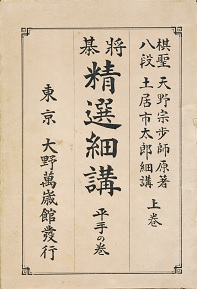 棋聖 天野宗步師原著
八段 土居市太郎細講
上卷
將棊
精選細講
平手の巻
東京 大野萬歳館發行